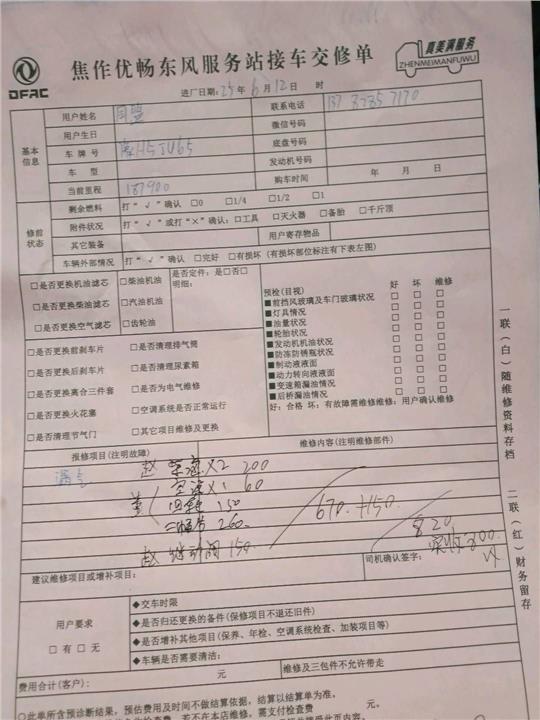 DFAC
焦作优畅东风服务站接车交修单
真美满服务
ZHENMEIMANFUWU
进厂日期: 25年 6月 12日 时
基本信息
用户姓名
联系电话
用户生日
微信号码
车牌号
底盘号码
车型
发动机号码
当前里程 187900
购车时间 年 月 日
修前状态
剩余燃料 打“√”确认 □0 □1/4 □1/2 □1
附件状况 打“√”或打“×”确认: □工具 □灭火器 □备胎 □千斤顶
其它装备 用户寄存物品
车辆外部情况 打“√”确认 □完好 □有损坏(有损坏部位标注有下表左图)
□是否更换机油滤芯 □柴油机油 是否定件: 是□否□
明细:
□是否更换柴滤芯 □汽油机油
□是否更换空气滤芯 □齿轮油
□是否更换前刹车片 □是否清理排气筒
□是否更换后刹车片 □是否清理尿素箱
□是否更换离合三件套 □是否为电气维修
□是否更换火花塞 □空调系统是否正常运行
□是否清理节气门 □其它项目维修及更换
预检(目视) 好 坏 维修
■前挡风玻璃及车门玻璃状况 □ □ □
■灯具情况 □ □ □
■油量状况 □ □ □
■轮胎状况 □ □ □
■发动机机油状况 □ □ □
■防冻防锈瓶状况 □ □ □
■制动液液面 □ □ □
■动力转向液液面 □ □ □
■变速箱漏油情况 □ □ □
■后桥漏油情况 □ □ □
好: 合格 坏: 有故障需维修维修: 用户确认维修
报修项目(注明故障) 维修内容(注明维修部件)
200
60
150
260
150
670 +150
820
司机确认签字:
建议维修项目或增补项目:
用户要求
□有 □无
◆交车时限
◆是否归还更换的备件(保修项不退还旧件)
◆是否增补其他项目(保养、年检、空调系统检查、加装项目等)
◆车辆是否需要清洁:
费用合计(客户): 元 维修及三包件不允许带走
○此单所含预诊断结果, 预估费用及时间不做结算依据, 结算以结算单为准。
一联(白)随维修资料存档
二联(红)财务留存